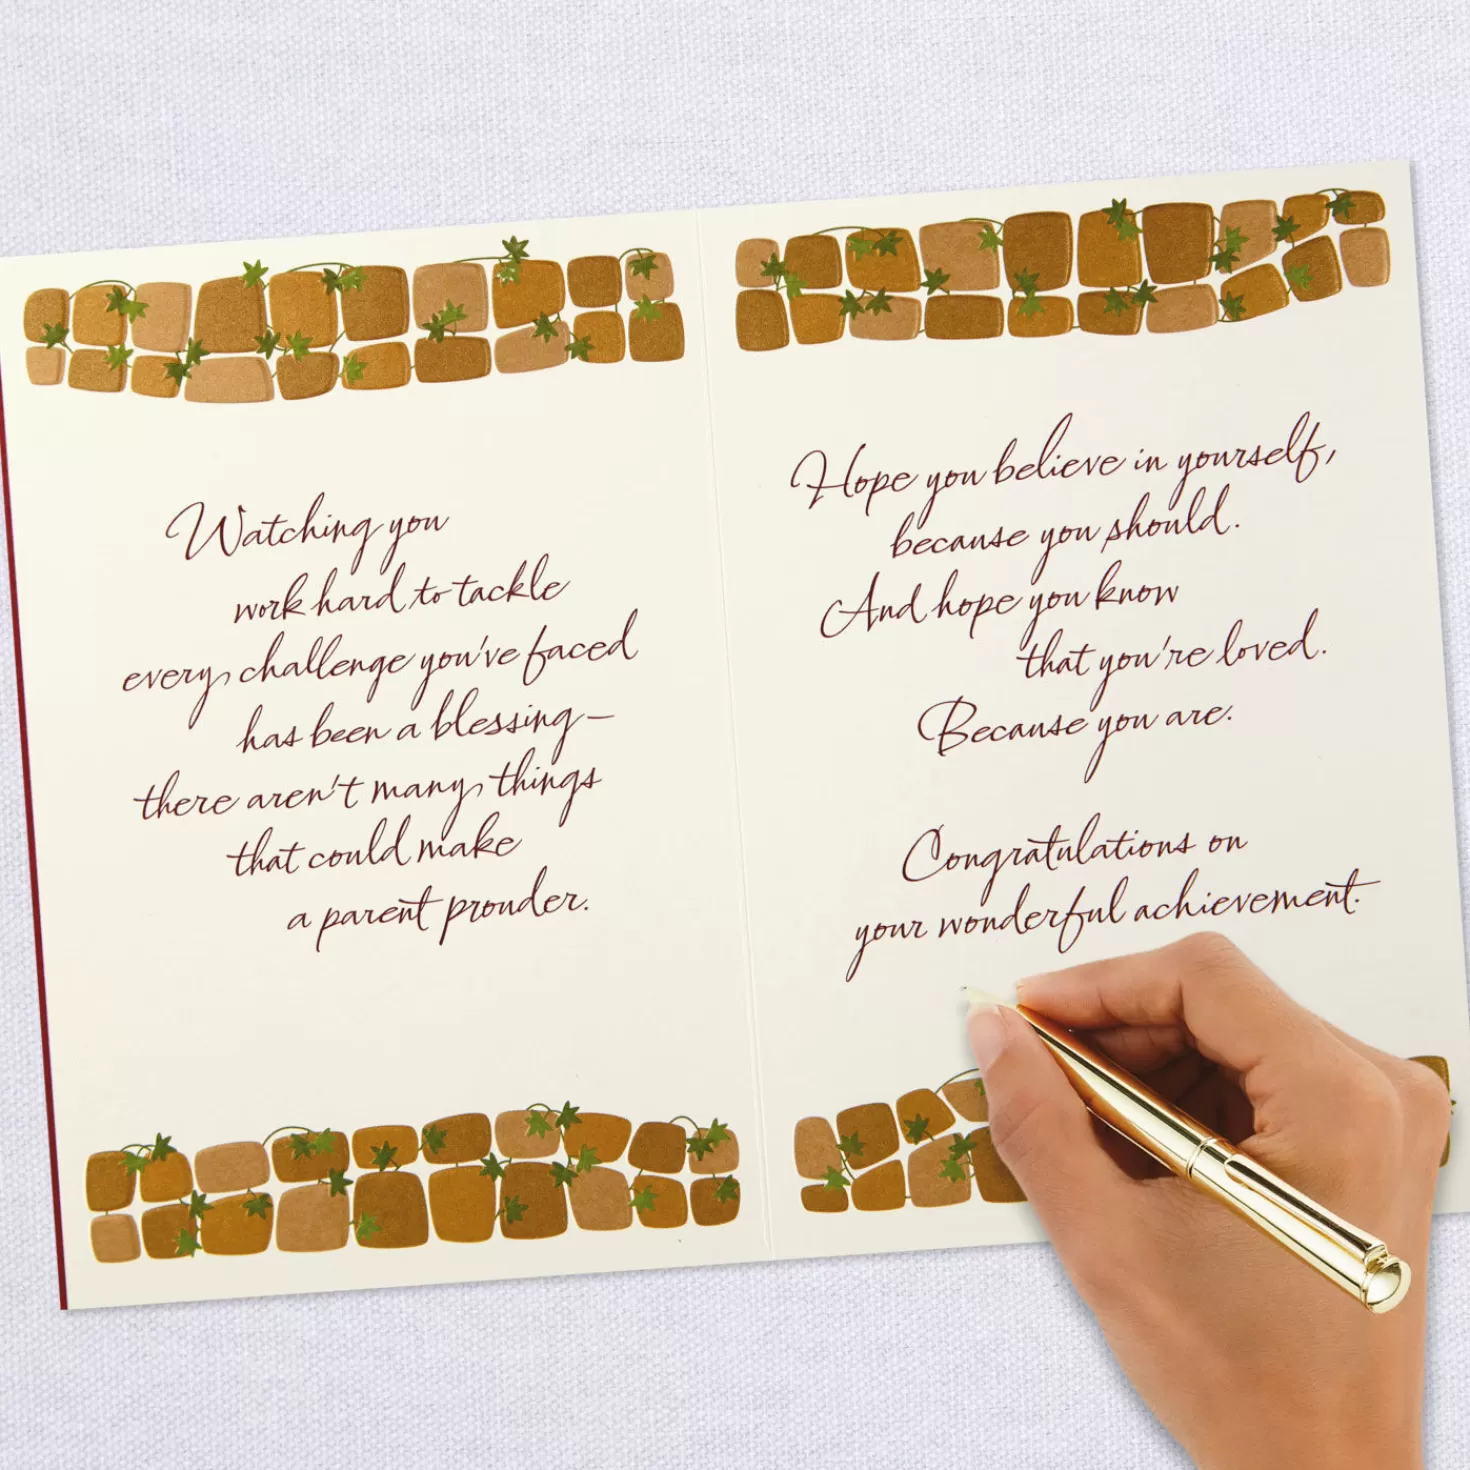 Watching you
work hard to tackle
every challenge you've faced
has been a blessing—
there aren't many things
that could make
a parent prouder.
Hope you believe in yourself,
because you should.
And hope you know
that you're loved.
Because you are.
Congratulations on
your wonderful achievement.